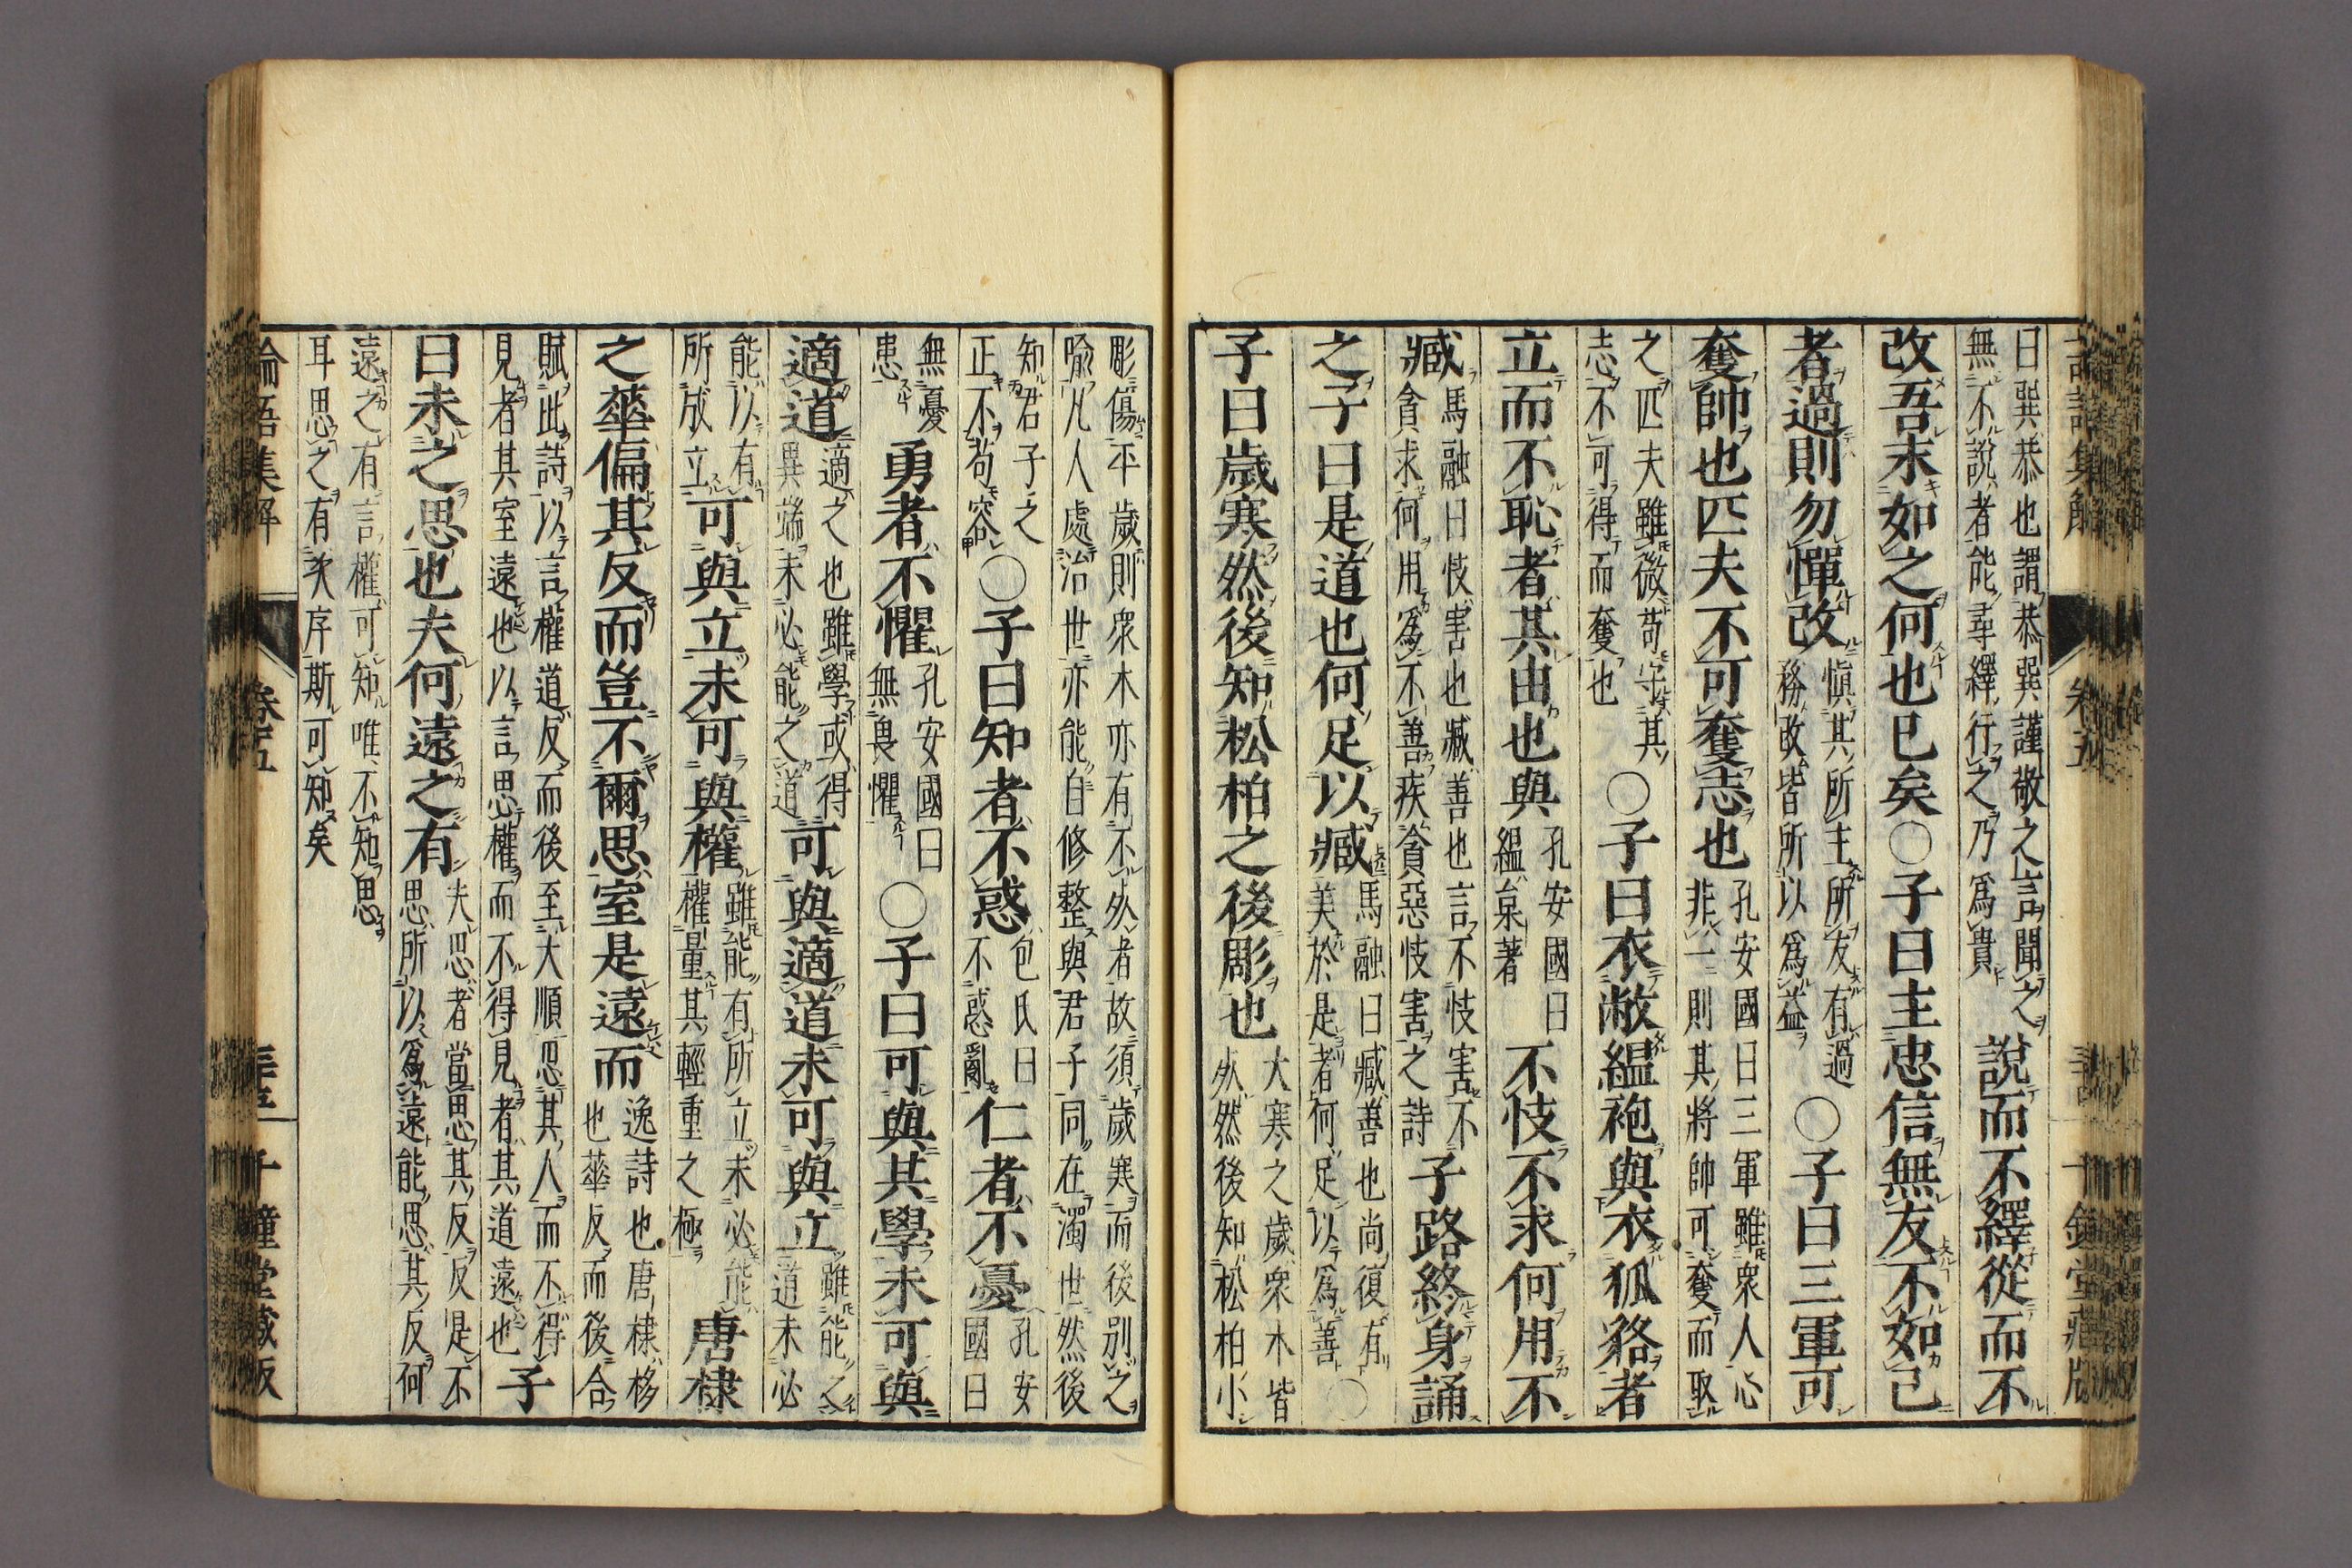 曰巽恭也謂恭巽謹敬之言聞之
無不說者能尋繹行之乃爲貴
說而不繹從而不
改吾末如之何也已矣○子曰主忠信無友不如己
者過則勿憚改
愼其所主所友有過
務改皆所以爲益
○子曰三軍可
奪帥也匹夫不可奪志也
孔安國曰三軍雖衆人心
非一則其將帥可奪而取
之匹夫雖微苟守其
志不可得而奪也
○子曰衣敝縕袍與衣狐貉者
立而不恥者其由也與
孔安國曰
縕枲著
不忮不求何用不
臧
馬融曰忮害也臧善也言不忮害不
貪求何用爲不善疾貪惡忮害之詩
子路終身誦
之子曰是道也何足以臧
馬融曰臧善也尚復有
美於是者何足以爲善
○
子曰歲寒然後知松柏之後彫也
大寒之歲衆木皆
死然後知松柏小
彫傷平歲則衆木亦有不死者故須歲寒而後別之
喩凡人處治世亦能自修整與君子同在濁世然後
知君子之
正不苟容
○子曰知者不惑
包氏曰
不惑亂
仁者不憂
孔安
國曰
無憂
患
勇者不懼
孔安國曰
無畏懼
○子曰可與共學未可與
適道
適之也雖學或得
異端未必能之道
可與適道未可與立
雖能之
道未必
能以有
所成立
可與立未可與權
雖能有所立未必能
權量其輕重之極
唐棣
之華偏其反而豈不爾思室是遠而
逸詩也唐棣栘
也華反而後合
賦此詩以言權道反而後至大順思其人而不得
見者其室遠也以言思權而不得見者其道遠也
子
曰未之思也夫何遠之有
夫思者當思其反反是不
思所以爲遠能思其反何
遠之有言權可知唯不知思
耳思之有次序斯可知矣
論語集解 卷五 千鐘堂藏版